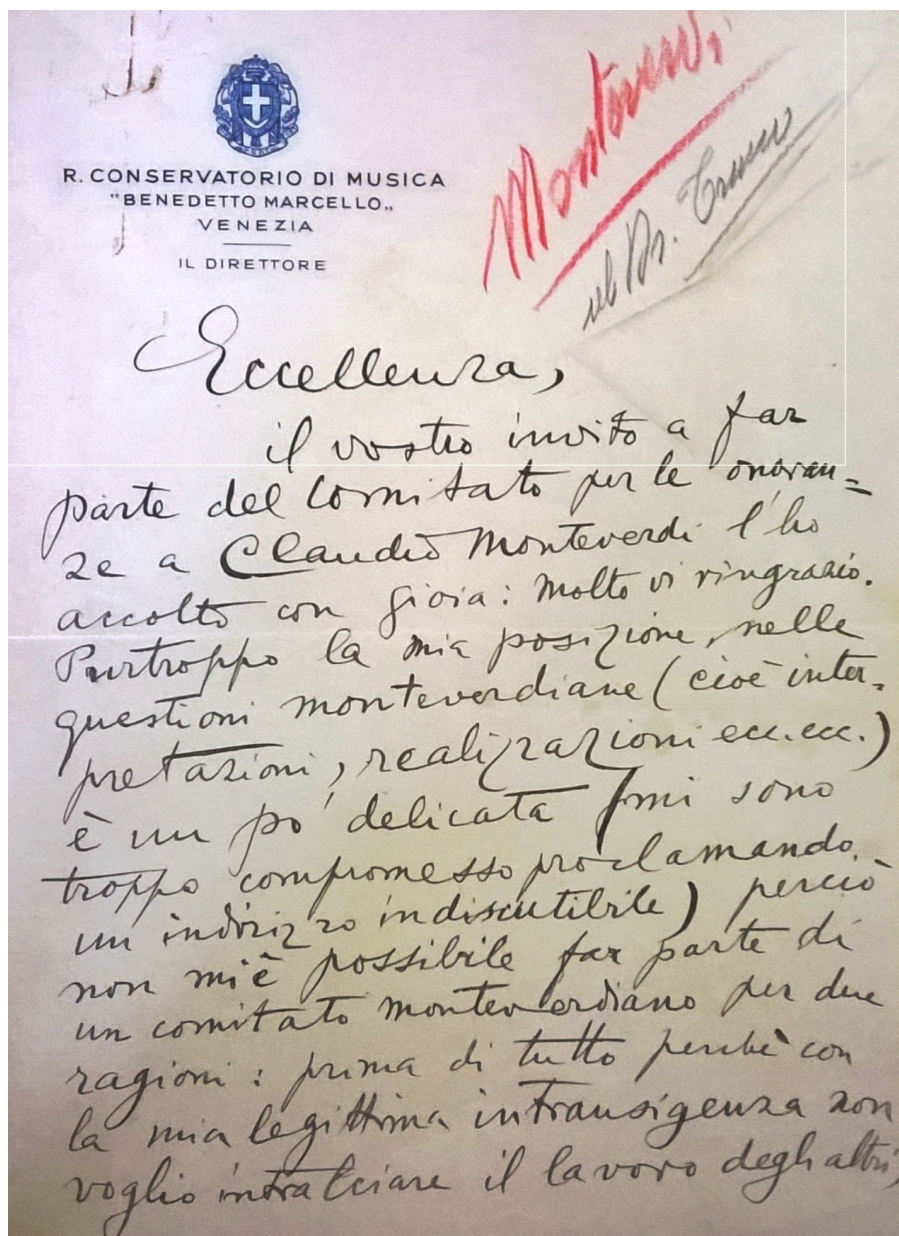 R. CONSERVATORIO DI MUSICA
"BENEDETTO MARCELLO„
VENEZIA
IL DIRETTORE
Monteverdi
Eccellenza,
il vostro invito a far
parte del Comitato per le onoran=
ze a Claudio Monteverdi l'ho
accolto con gioia: molto vi ringrazio.
Purtroppo la mia posizione, nelle
questioni monteverdiane (cioè inter=
pretazioni, realizzazioni ecc. ecc.)
è un po' delicata (mi sono
troppo compromesso proclamando
un indirizzo indiscutibile) perciò
non mi è possibile far parte di
un comitato monteverdiano per due
ragioni: prima di tutto perchè con
la mia legittima intransigenza non
voglio intralciare il lavoro degli altri,